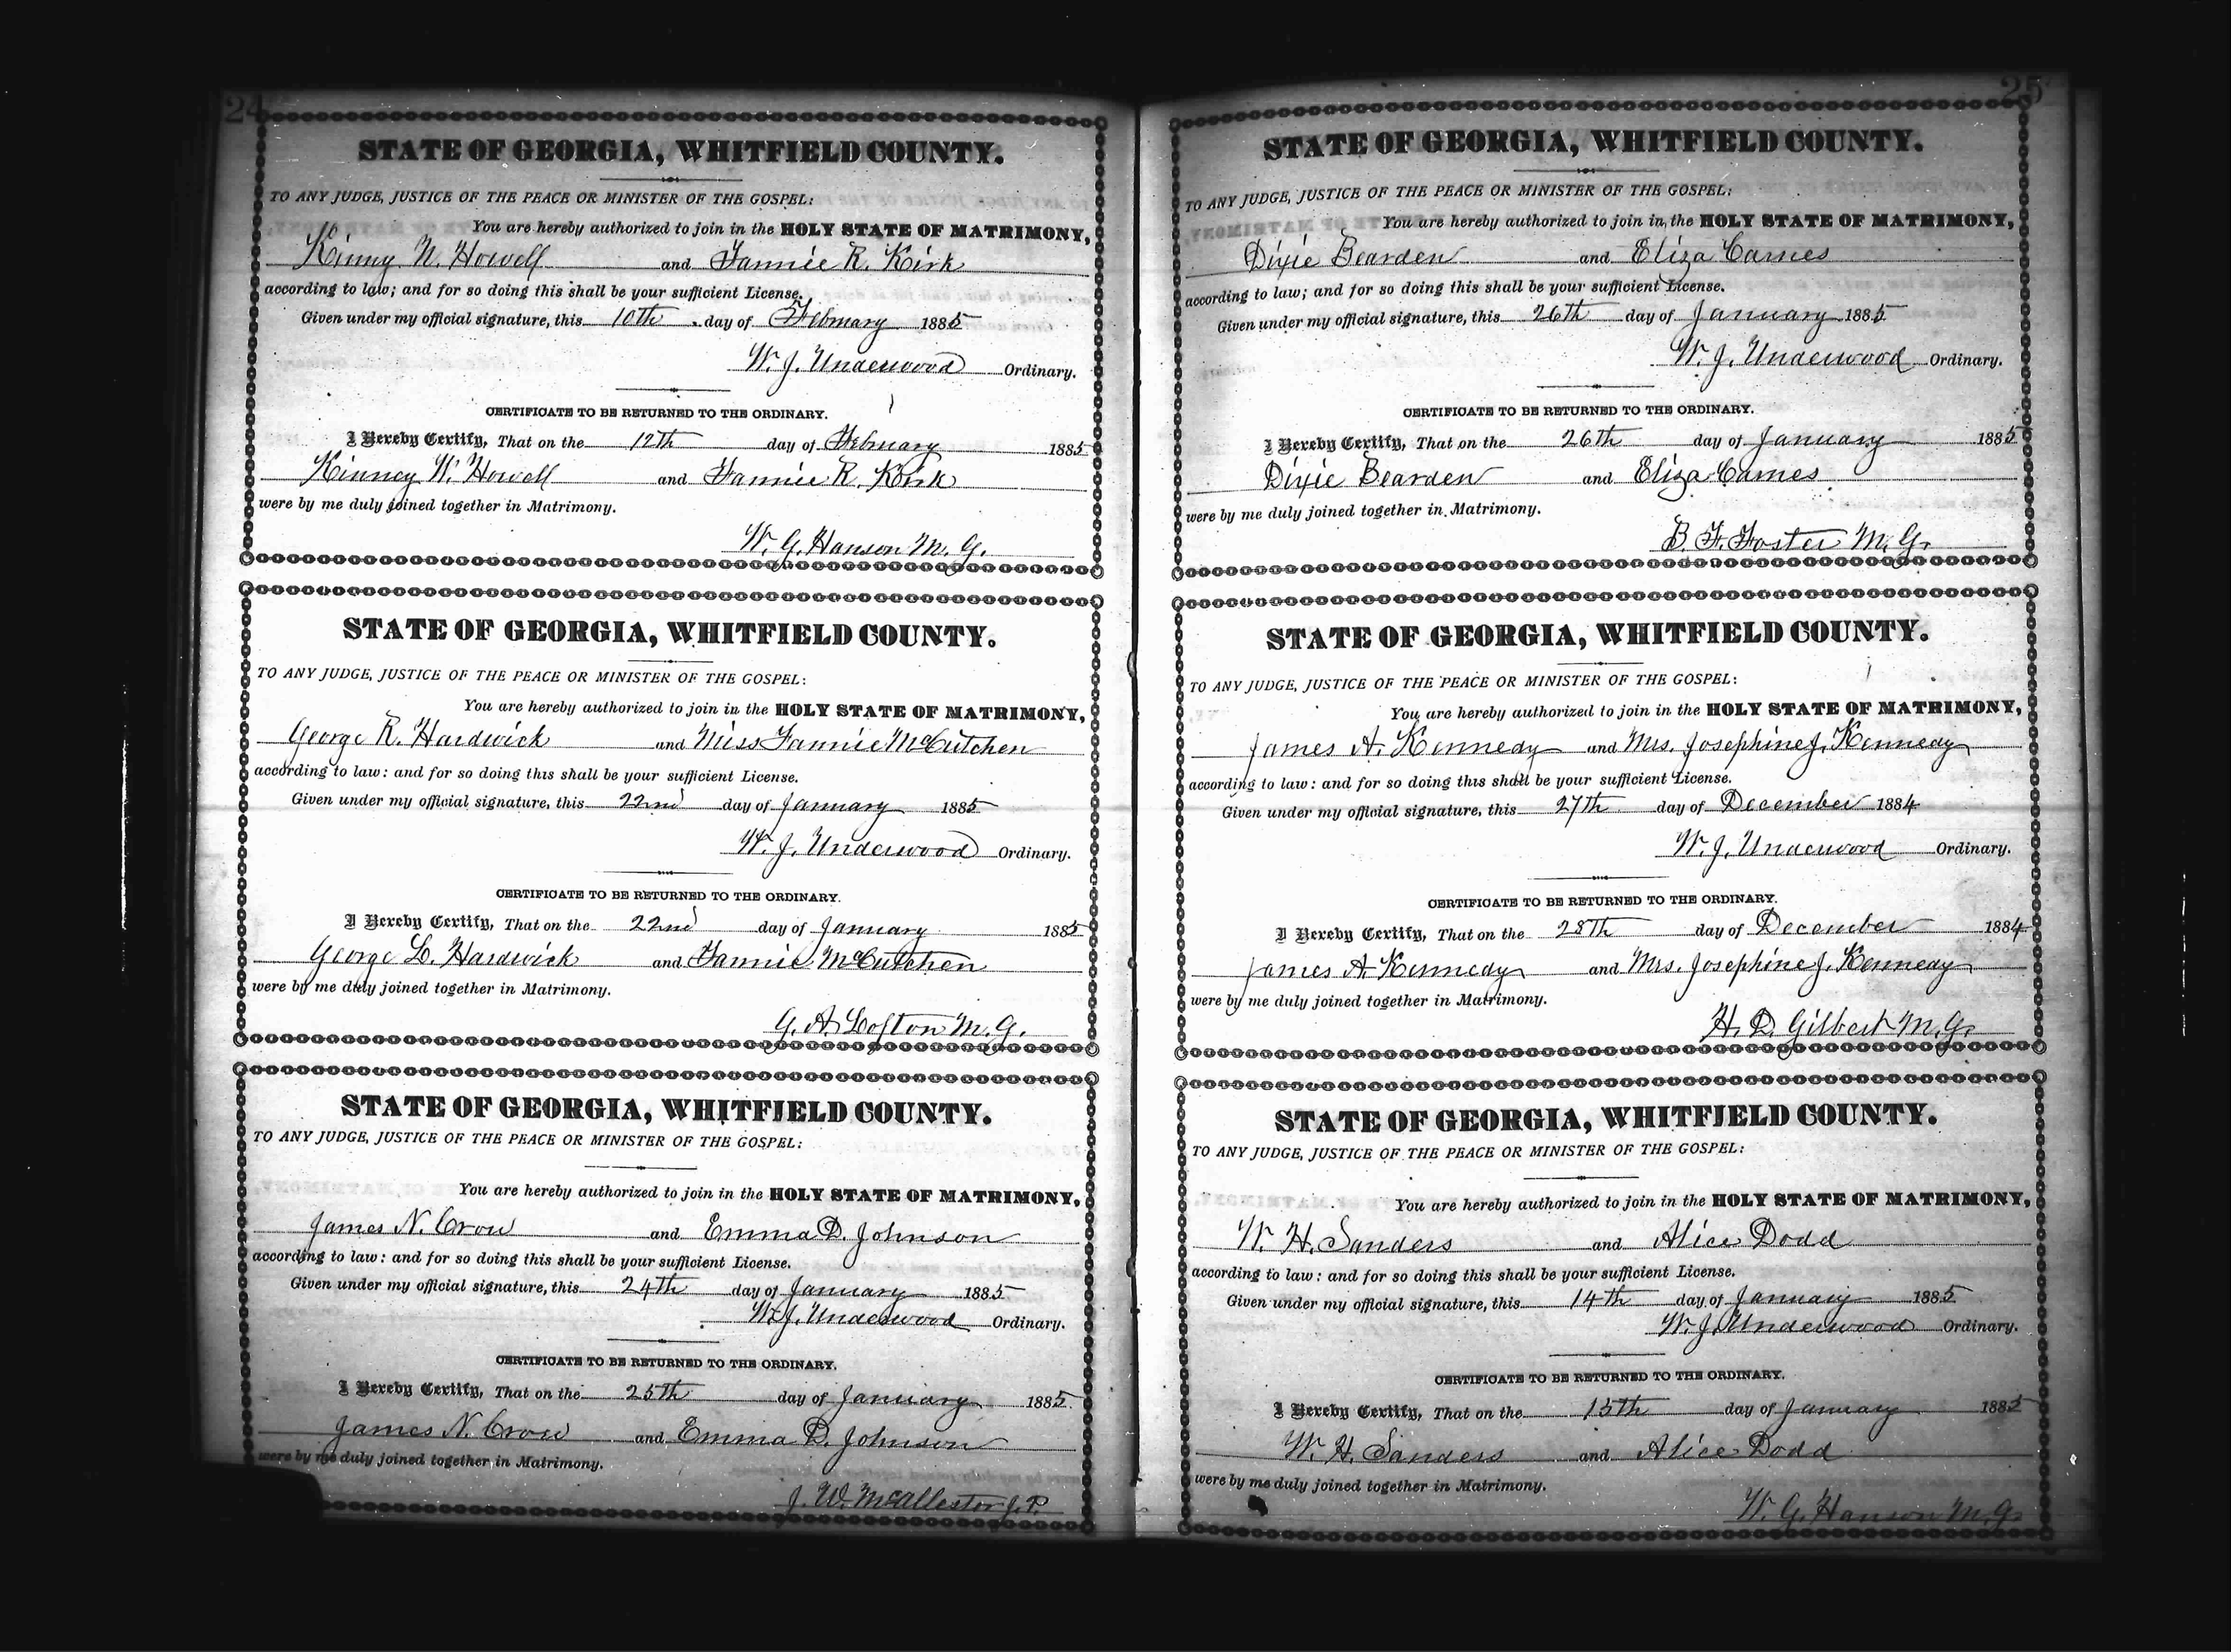 24
STATE OF GEORGIA, WHITFIELD COUNTY.
TO ANY JUDGE, JUSTICE OF THE PEACE OR MINISTER OF THE GOSPEL:
You are hereby authorized to join in the HOLY STATE OF MATRIMONY,
Kinney W. Howell and Fannie R. Kirk
according to law; and for so doing this shall be your sufficient License.
Given under my official signature, this 10th day of February 1885
W. J. Underwood Ordinary.
CERTIFICATE TO BE RETURNED TO THE ORDINARY.
I Hereby Certify, That on the 12th day of February 1885
Kinney W. Howell and Fannie R. Kirk
were by me duly joined together in Matrimony.
W. G. Hanson M. G.
STATE OF GEORGIA, WHITFIELD COUNTY.
TO ANY JUDGE, JUSTICE OF THE PEACE OR MINISTER OF THE GOSPEL:
You are hereby authorized to join in the HOLY STATE OF MATRIMONY,
George R. Hardwick and Miss Fannie McCutchen
according to law: and for so doing this shall be your sufficient License.
Given under my official signature, this 22nd day of January 1885
W. J. Underwood Ordinary.
CERTIFICATE TO BE RETURNED TO THE ORDINARY.
I Hereby Certify, That on the 22nd day of January 1885
George L. Hardwick and Fannie McCutchen
were by me duly joined together in Matrimony.
G. A. Lofton M. G.
STATE OF GEORGIA, WHITFIELD COUNTY.
TO ANY JUDGE, JUSTICE OF THE PEACE OR MINISTER OF THE GOSPEL:
You are hereby authorized to join in the HOLY STATE OF MATRIMONY,
James N. Crow and Emma D. Johnson
according to law: and for so doing this shall be your sufficient License.
Given under my official signature, this 24th day of January 1885
W. J. Underwood Ordinary.
CERTIFICATE TO BE RETURNED TO THE ORDINARY.
I Hereby Certify, That on the 25th day of January 1885
James N. Crow and Emma D. Johnson
were by me duly joined together in Matrimony.
J. W. McAllester J. P.
25
STATE OF GEORGIA, WHITFIELD COUNTY.
TO ANY JUDGE, JUSTICE OF THE PEACE OR MINISTER OF THE GOSPEL:
You are hereby authorized to join in the HOLY STATE OF MATRIMONY,
Dixie Bearden and Eliza Carnes
according to law; and for so doing this shall be your sufficient License.
Given under my official signature, this 26th day of January 1885
W. J. Underwood Ordinary.
CERTIFICATE TO BE RETURNED TO THE ORDINARY.
I Hereby Certify, That on the 26th day of January 1885
Dixie Bearden and Eliza Carnes
were by me duly joined together in Matrimony.
B. F. Foster M. G.
STATE OF GEORGIA, WHITFIELD COUNTY.
TO ANY JUDGE, JUSTICE OF THE PEACE OR MINISTER OF THE GOSPEL:
You are hereby authorized to join in the HOLY STATE OF MATRIMONY,
James A. Kennedy and Mrs. Josephine J. Kennedy
according to law: and for so doing this shall be your sufficient License.
Given under my official signature, this 27th day of December 1884
W. J. Underwood Ordinary.
CERTIFICATE TO BE RETURNED TO THE ORDINARY.
I Hereby Certify, That on the 28th day of December 1884
James A. Kennedy and Mrs. Josephine J. Kennedy
were by me duly joined together in Matrimony.
H. D. Gilbert M. G.
STATE OF GEORGIA, WHITFIELD COUNTY.
TO ANY JUDGE, JUSTICE OF THE PEACE OR MINISTER OF THE GOSPEL:
You are hereby authorized to join in the HOLY STATE OF MATRIMONY,
W. H. Sanders and Alice Dodd
according to law: and for so doing this shall be your sufficient License.
Given under my official signature, this 14th day of January 1885
W. J. Underwood Ordinary.
CERTIFICATE TO BE RETURNED TO THE ORDINARY.
I Hereby Certify, That on the 15th day of January 1885
W. H. Sanders and Alice Dodd
were by me duly joined together in Matrimony.
W. G. Hanson M. G.